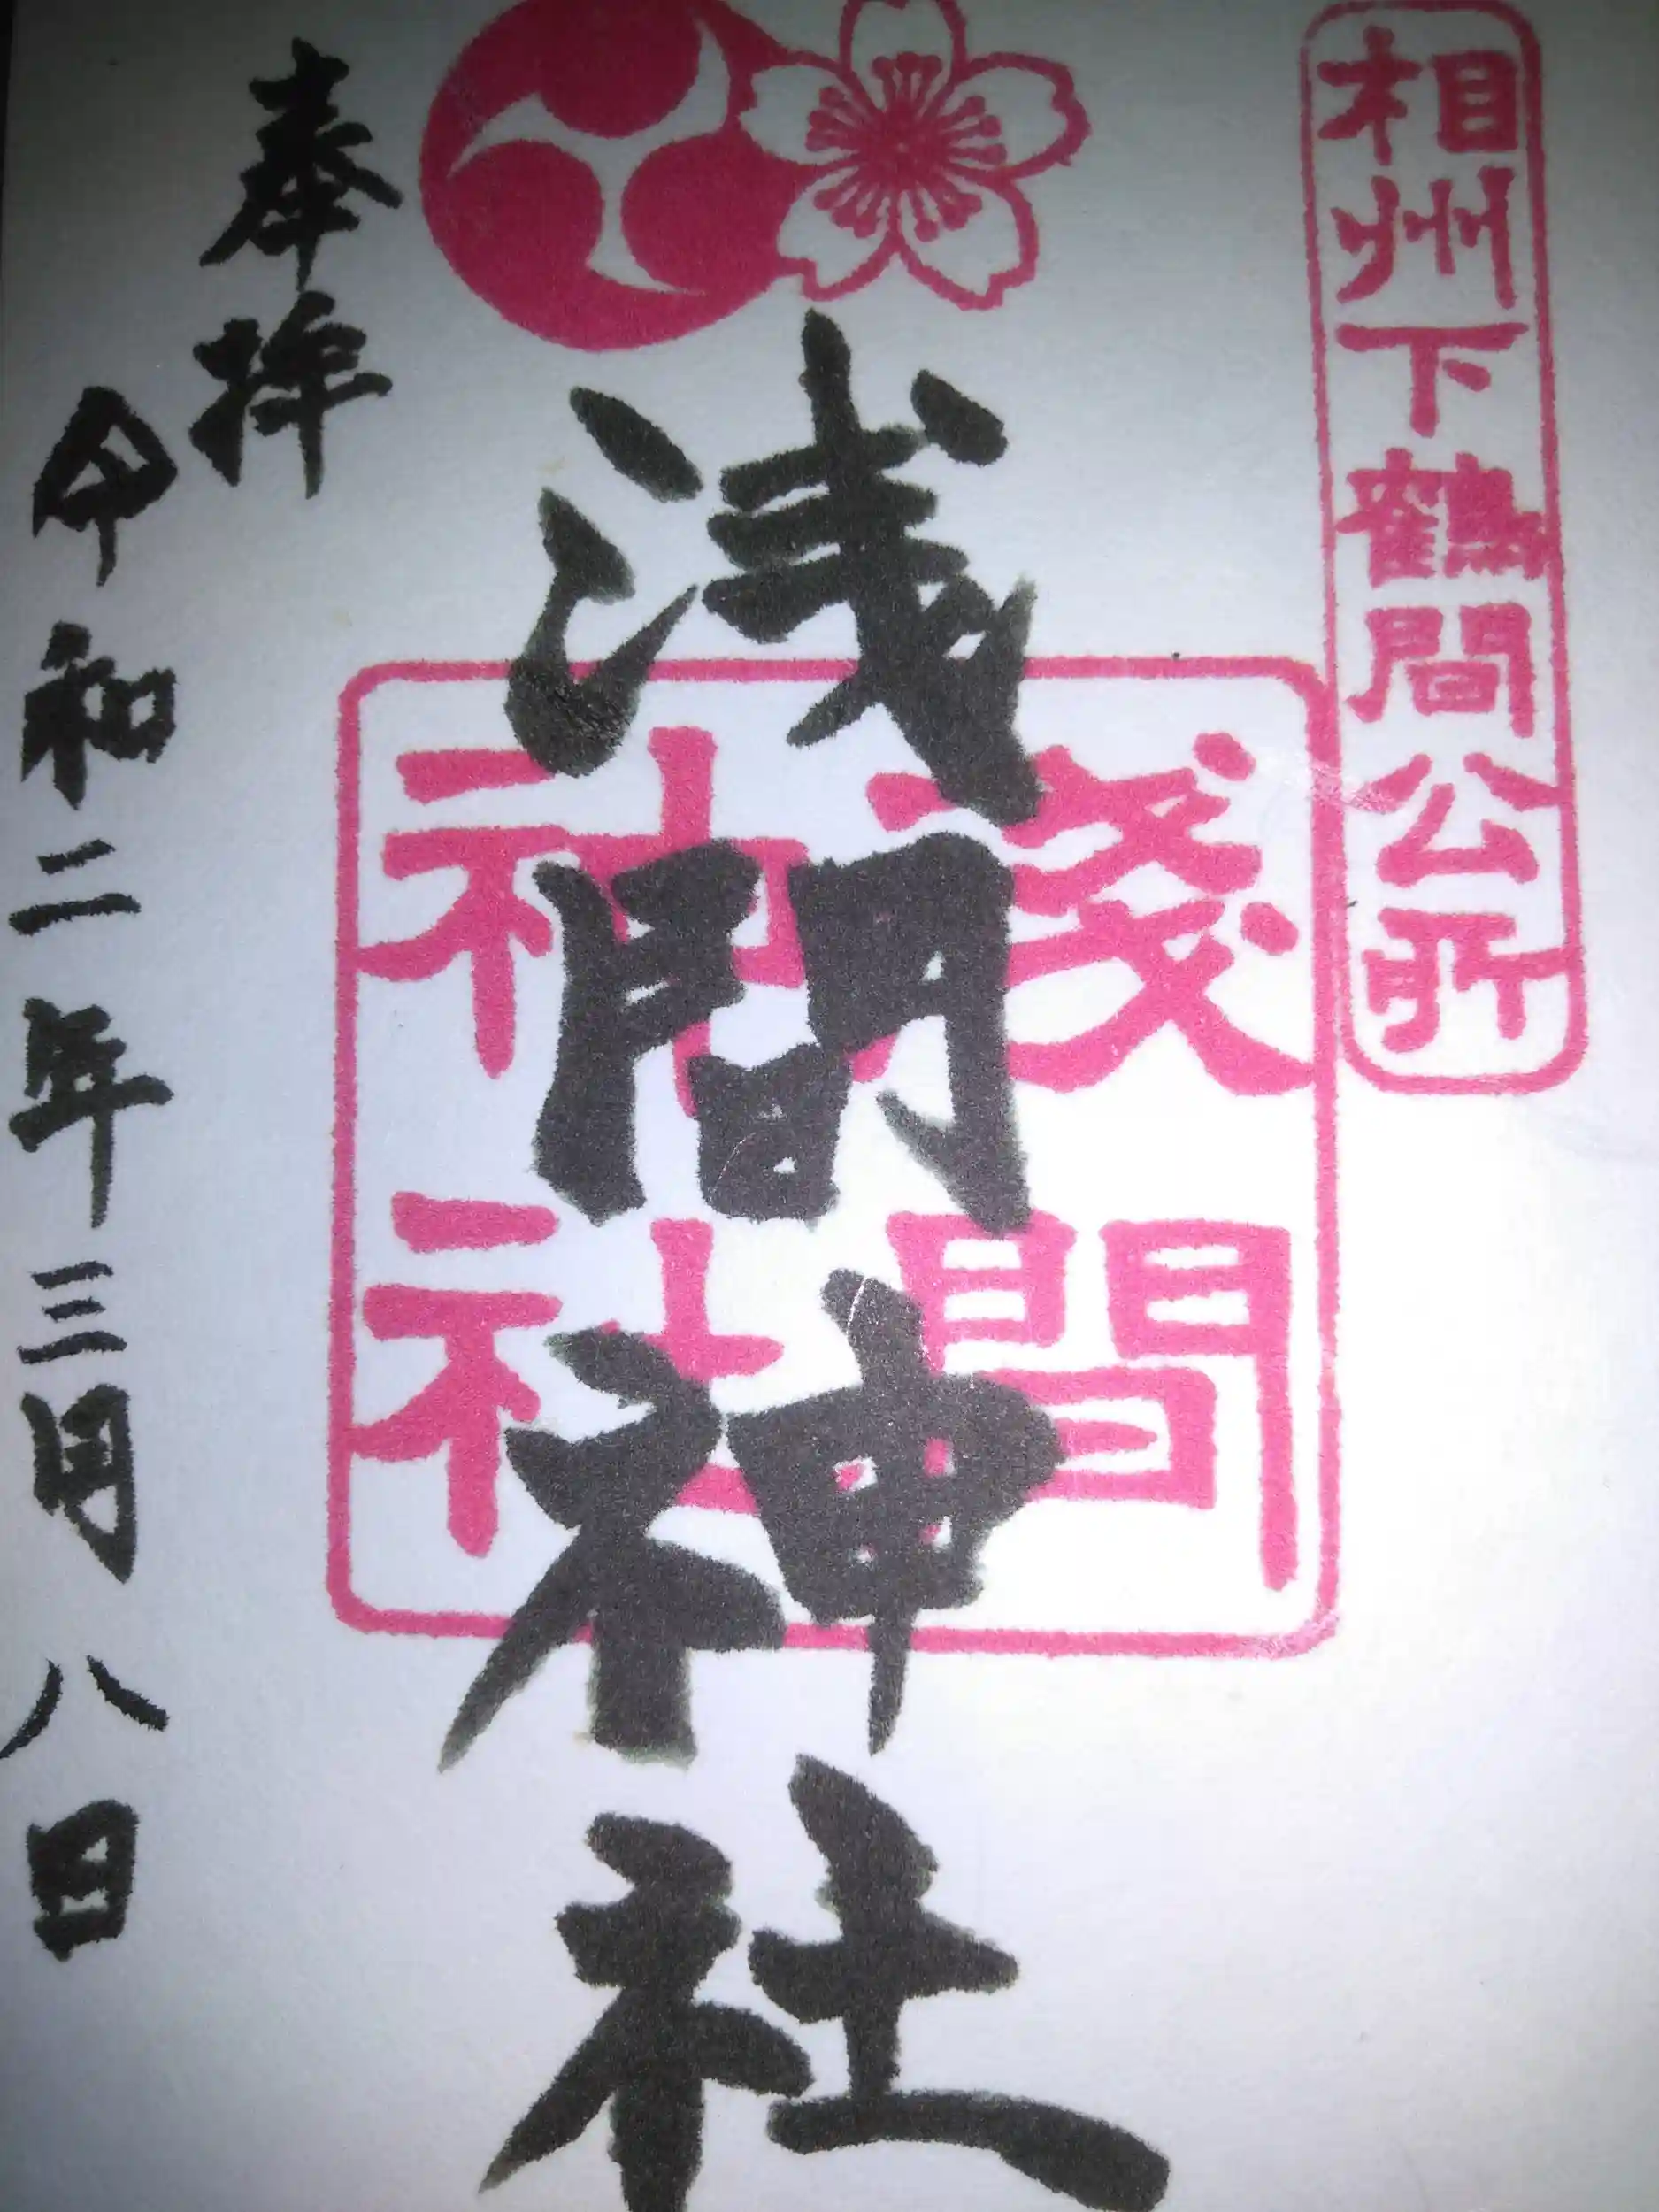 相州下鶴間公所
浅間神社
淺間
神社
奉拝
令和二年三月八日